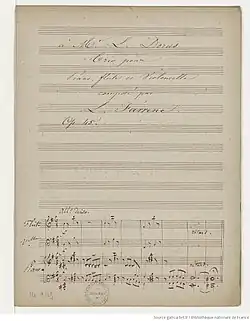 à Mr. L. Dorus
Trio pour
Piano, flûte et Violoncelle
composé par
L. Farrenc
Op. 45.
Flûte
Piano
Source gallica.bnf.fr / Bibliothèque nationale de France